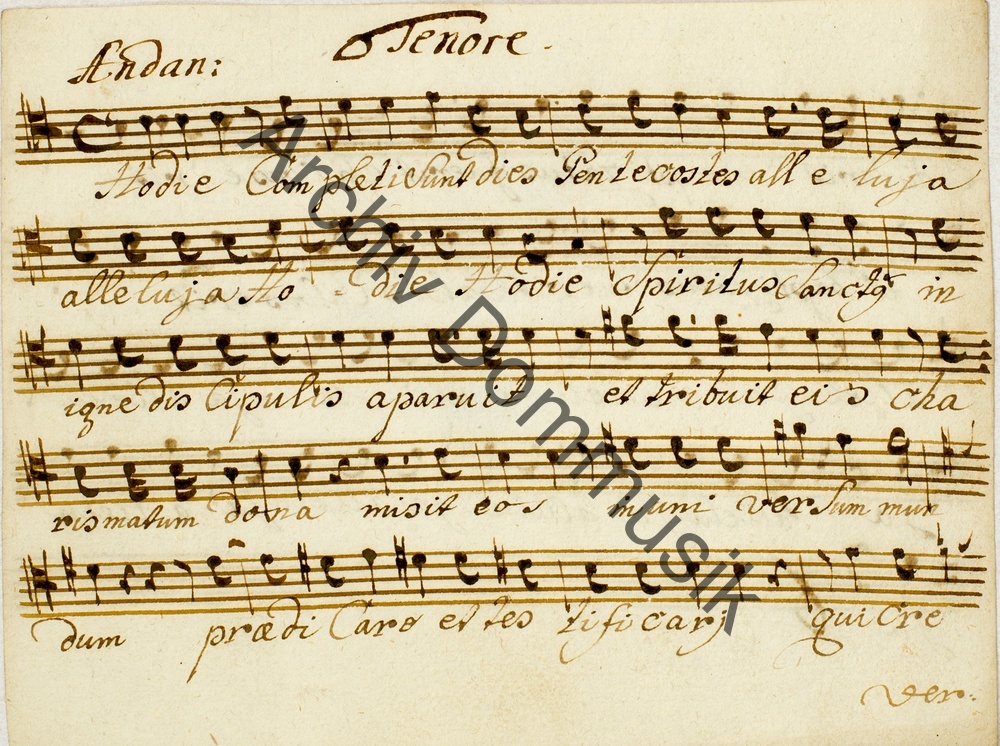 Tenore.
Andan:
Hodie Completi Sunt dies Pentecostes all e luja
alleluja Ho - die Hodie Spiritus Sanctq in
igne dis Cipulis aparuit et tribuit eis cha
rismatum dona misit eos in uni versum mun
dum prædi Care et tes tificarj qui Cre
ver:
Archiv Dommusik